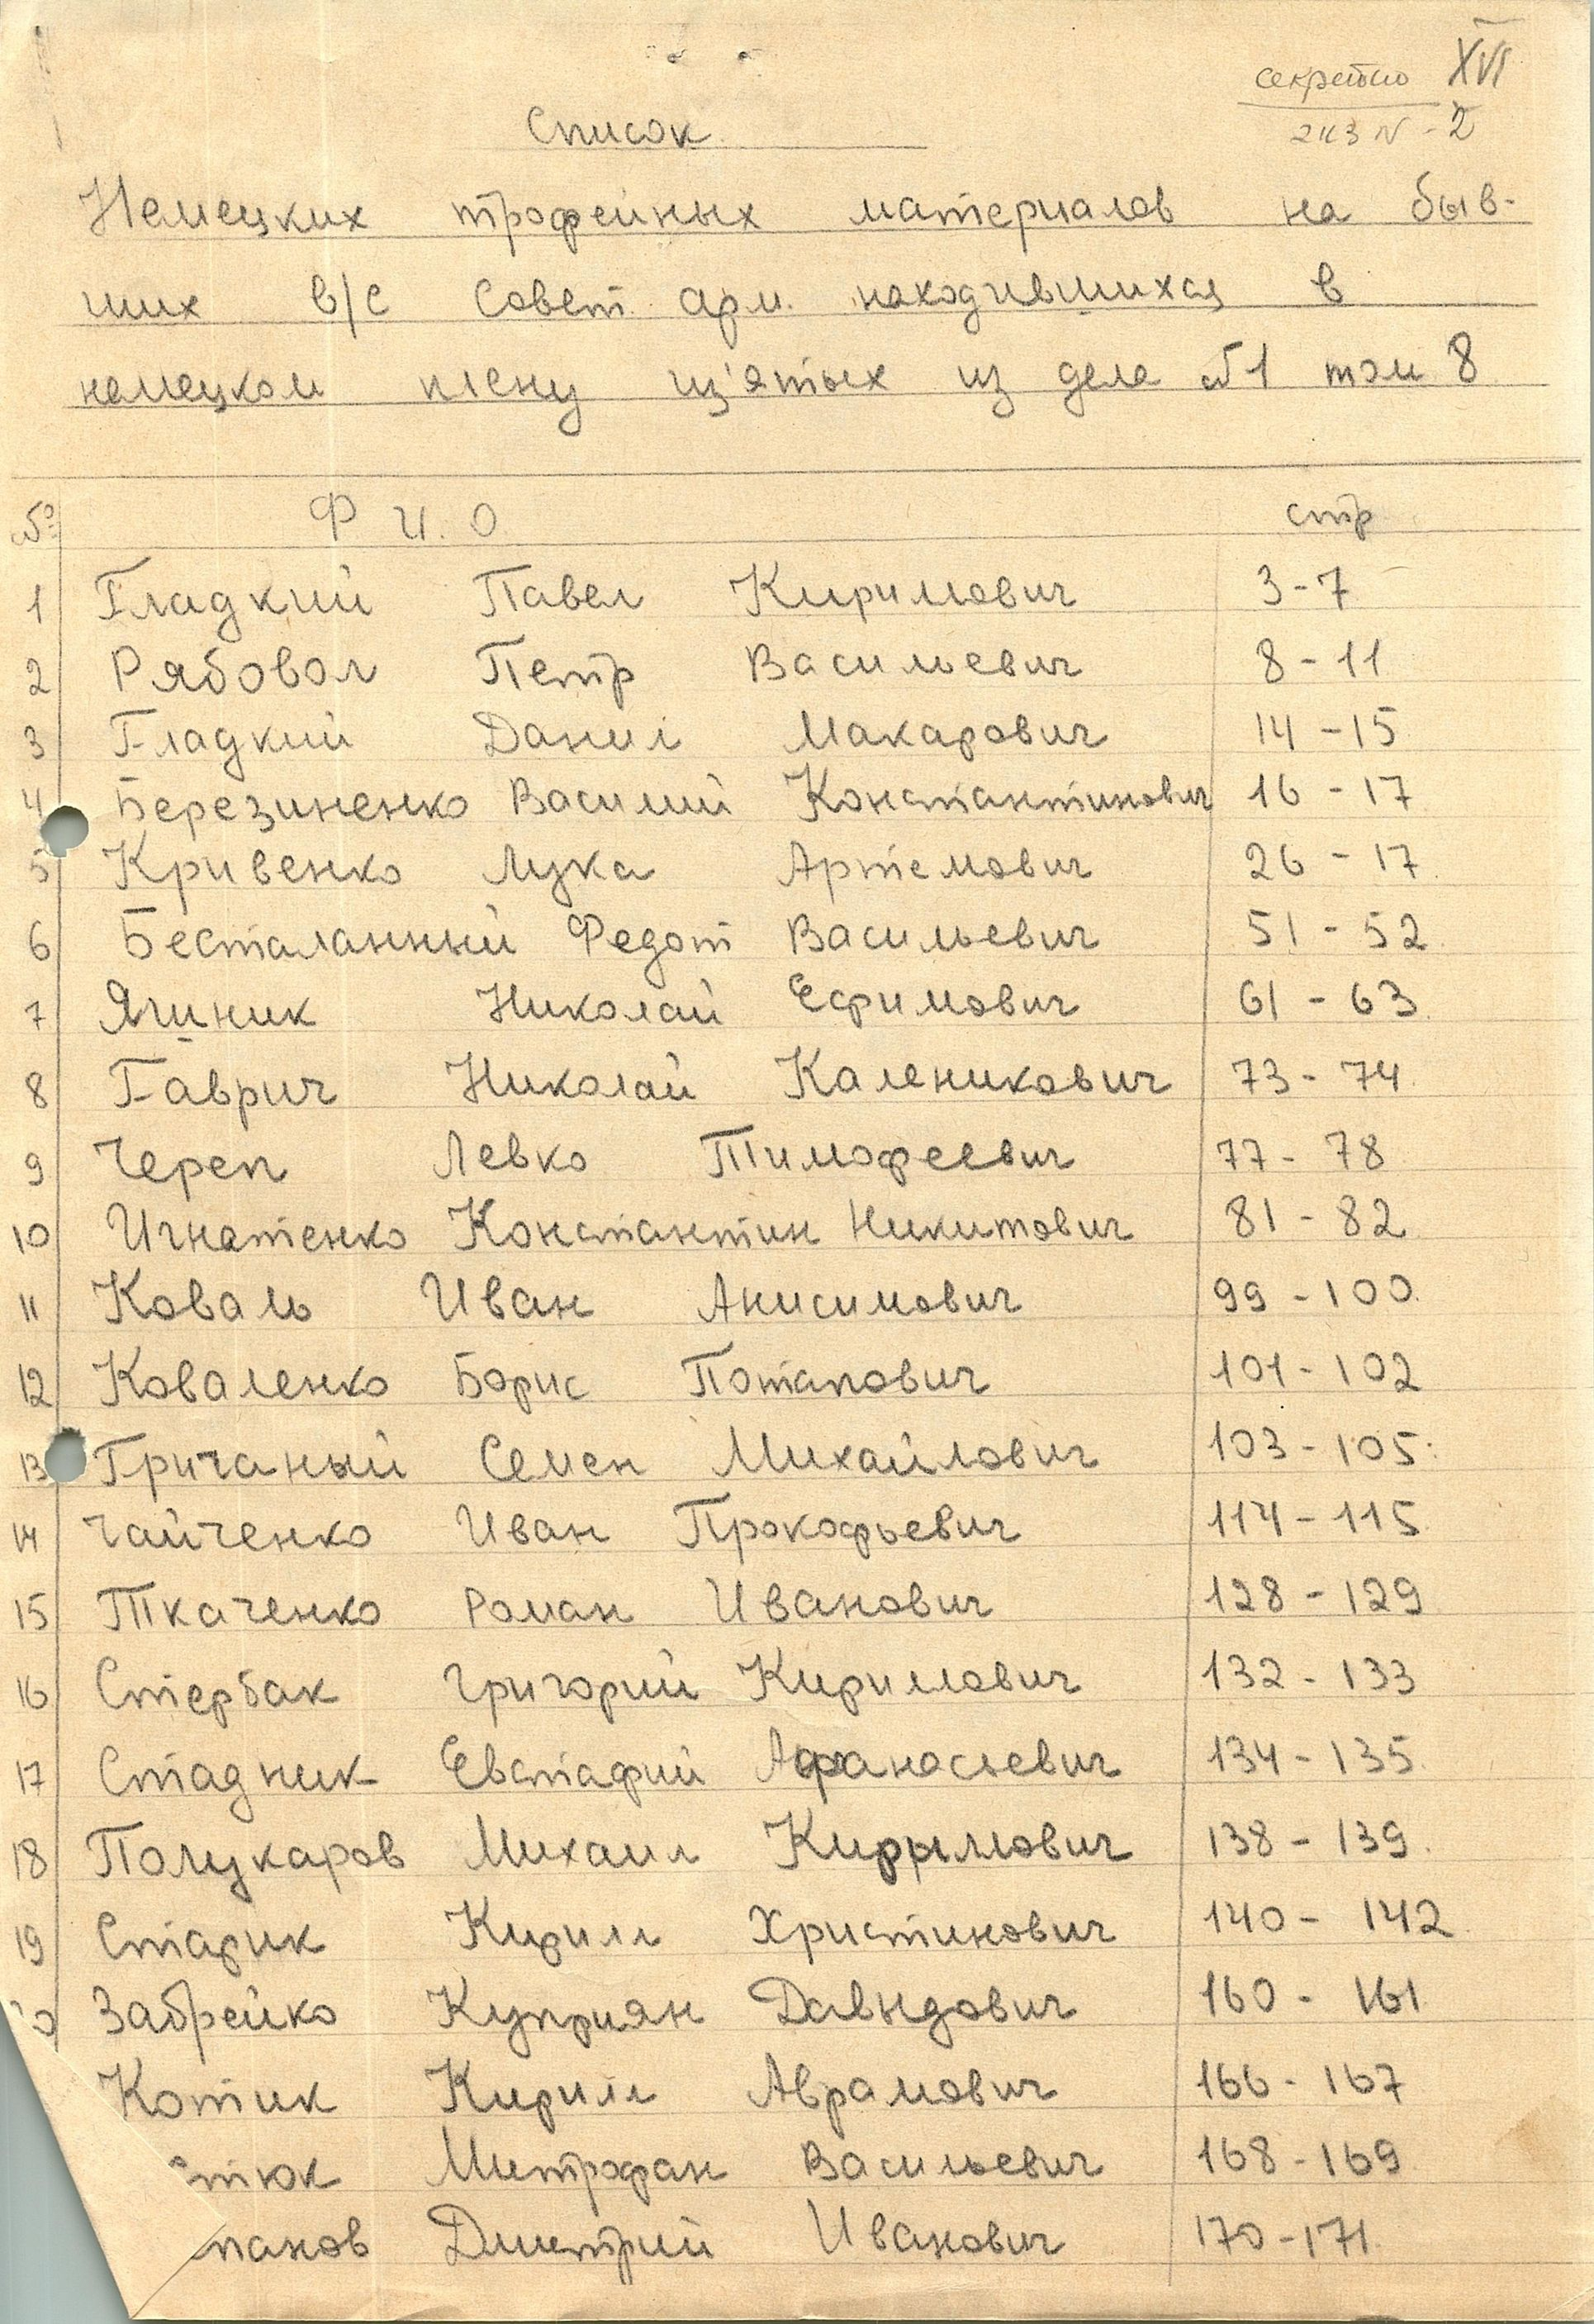 секретно XVI
экз N - 2
Список
Немецких трофейных материалов на быв-
ших в/с Совет. арм. находившихся в
немецком плену из'ятых из дела №1 том 8
№ Ф И. О стр
1 Гладкий Павел Кирилович 3-7
2 Рябовол Петр Васильевич 8-11
3 Гладкий Данил Макарович 14-15
4 Березиненко Василий Константинович 16-17
5 Кривенко Лука Артемович 26-17
6 Бесталанный Федот Васильевич 51-52
7 Николай Ефимович 61-63
8 Гаврич Николай Каленикович 73-74
9 Череп Левко Тимофеевич 77-78
10 Игнатенко Константин Никитович 81-82
11 Коваль Иван Анисимович 99-100
12 Коваленко Борис Потапович 101-102
13 Гричаный Семен Михайлович 103-105
14 Чайченко Иван Прокофьевич 114-115
15 Ткаченко Роман Иванович 128-129
16 Стербак Григорий Кирилович 132-133
17 Стадник Евстафий Афанасьевич 134-135
18 Полукаров Михаил Кирылович 138-139
19 Старик Кирилл Христинович 140-142
Забрейко Куприян Давидович 160-161
Котик Кирилл Аврамович 166-167
тюк Митрофан Васильевич 168-169
панов Дмитрий Иванович 170-171